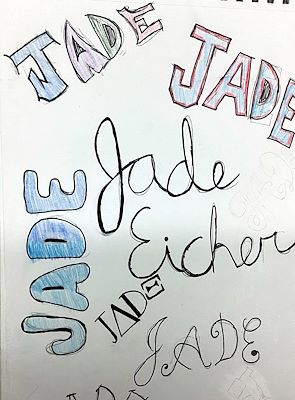 JADE
JADE
JADE
Jade
Eicher
JADE
JADE